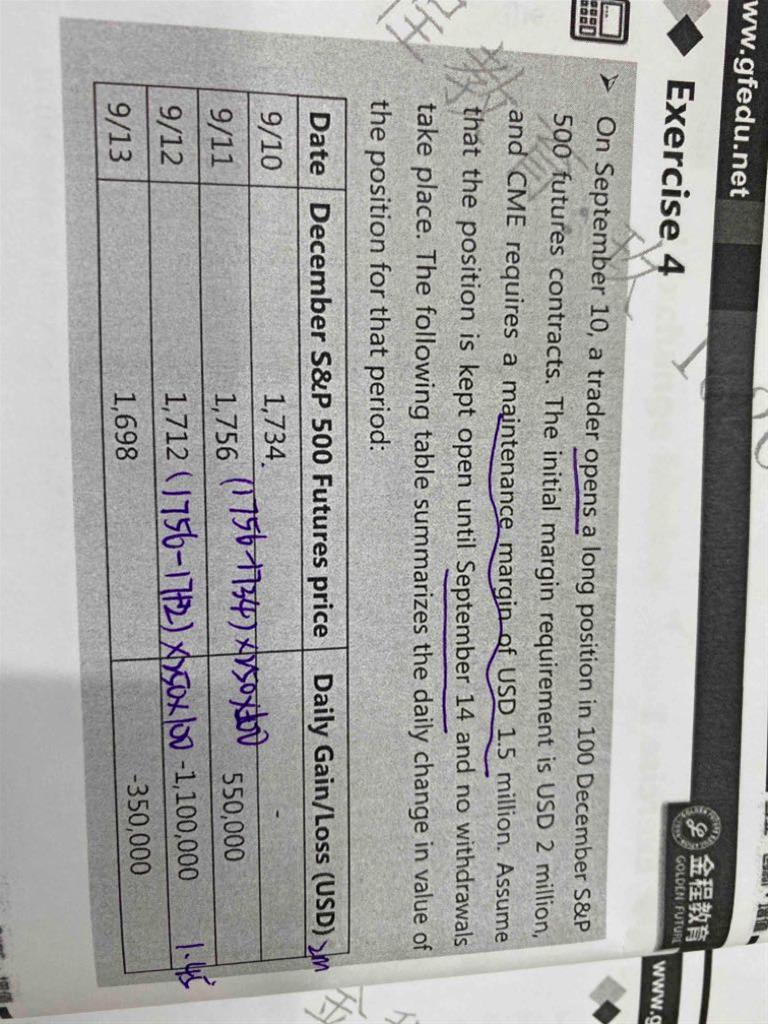 www.gfedu.net
Exercise 4
金程教育
GOLDEN FUTURE
www.g
➢ On September 10, a trader opens a long position in 100 December S&P
500 futures contracts. The initial margin requirement is USD 2 million,
and CME requires a maintenance margin of USD 1.5 million. Assume
that the position is kept open until September 14 and no withdrawals
take place. The following table summarizes the daily change in value of
the position for that period:
Date December S&P 500 Futures price Daily Gain/Loss (USD) 2M
9/10 1,734 -
9/11 1,756 (1756-1734)×250×100 550,000
9/12 1,712 (1756-1712)×250×100 -1,100,000 1.45
9/13 1,698 -350,000